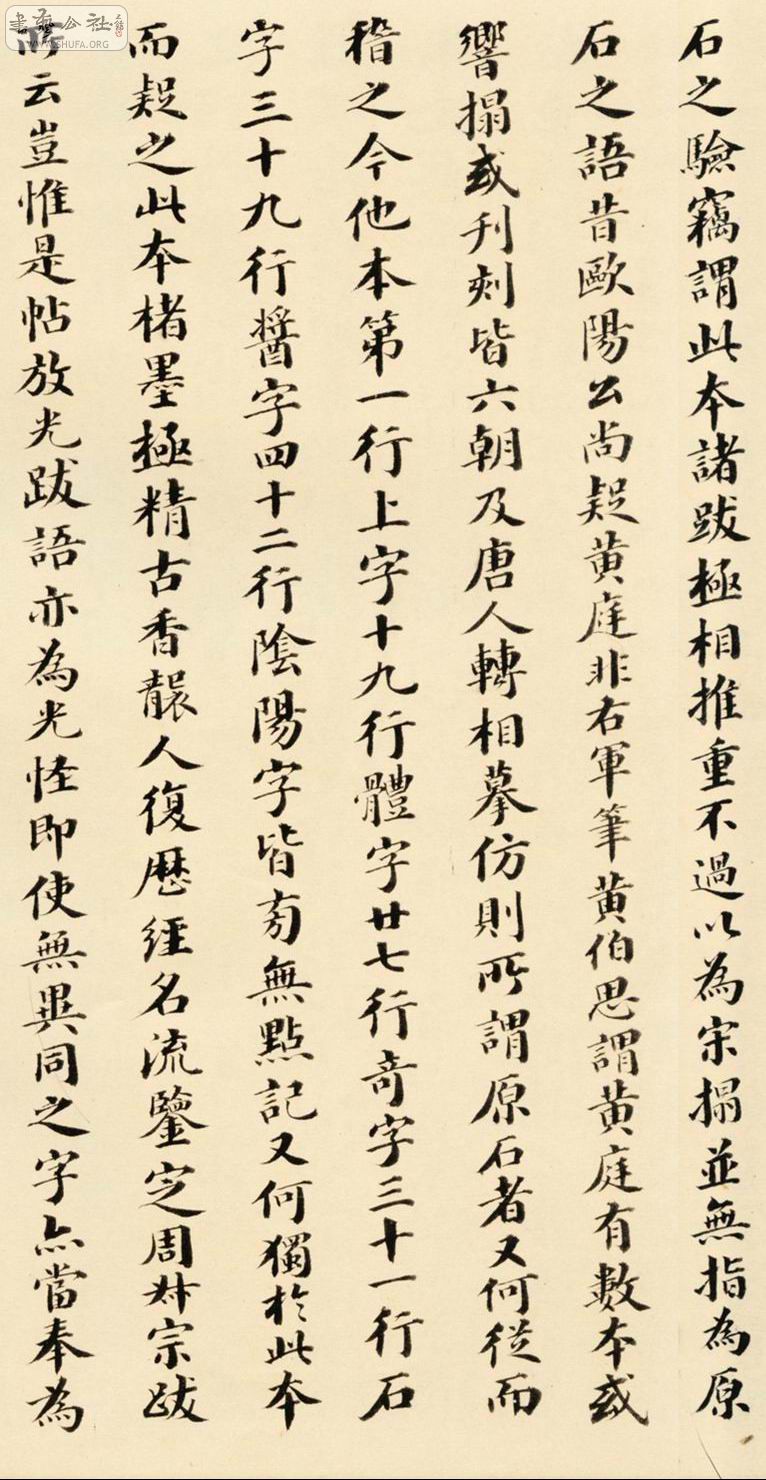 石之驗竊謂此本諸跋極相推重不過以為宋搨並無指為原
石之語昔歐陽公尚疑黄庭非右軍筆黄伯思謂黄庭有數本或
響搨或刋刻皆六朝及唐人轉相摹仿則所謂原石者又何從而
稽之今他本第一行上字十九行體字廿七行奇字三十一行石
字三十九行醬字四十二行陰陽字皆旁無點記又何獨於此本
而疑之此本楮墨極精古香襲人復歷經名流鑒定周叔宗跋
所云豈惟是帖放光跋語亦為光怪即使無異同之字亦當奉為
書藝公社
WWW.SHUFA.ORG